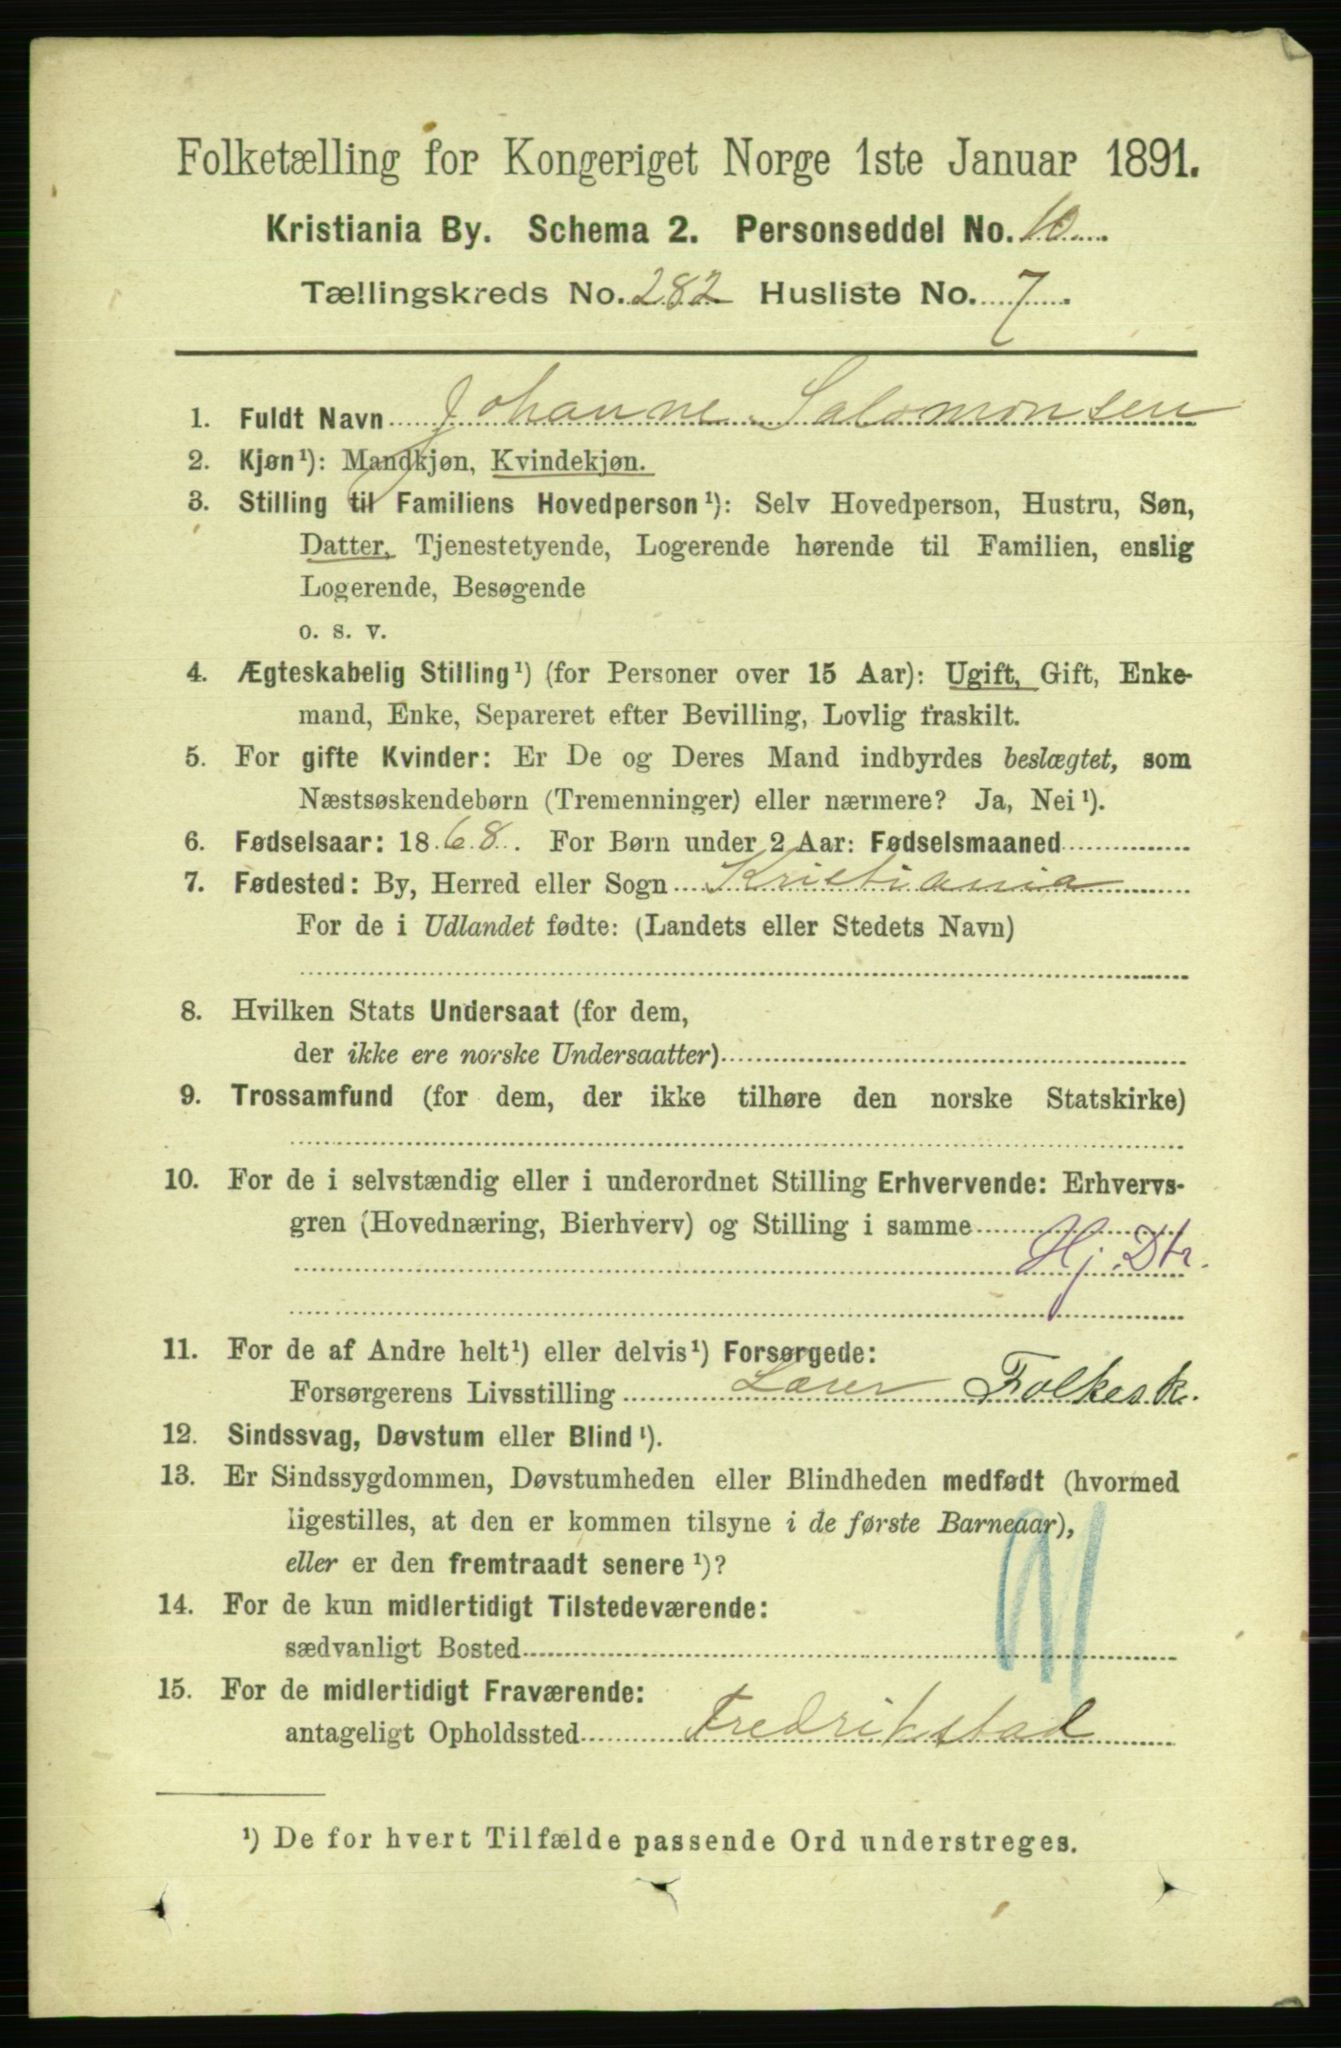 Folketælling for Kongeriget Norge 1ste Januar 1891.
Kristiania By. Schema 2. Personseddel No. 10
Tællingskreds No. 282 Husliste No. 7
1. Fuldt Navn Johanne Salomonsen
2. Kjøn¹): Mandkjøn, Kvindekjøn.
3. Stilling til Familiens Hovedperson¹): Selv Hovedperson, Hustru, Søn,
Datter, Tjenestetyende, Logerende hørende til Familien, enslig
Logerende, Besøgende
o. s. v.
4. Ægteskabelig Stilling¹) (for Personer over 15 Aar): Ugift, Gift, Enke-
mand, Enke, Separeret efter Bevilling, Lovlig fraskilt.
5. For gifte Kvinder: Er De og Deres Mand indbyrdes beslægtet, som
Næstsøskendebørn (Tremenninger) eller nærmere? Ja, Nei¹).
6. Fødselsaar: 1868. For Børn under 2 Aar: Fødselsmaaned
7. Fødested: By, Herred eller Sogn Kristiania
For de i Udlandet fødte: (Landets eller Stedets Navn)
8. Hvilken Stats Undersaat (for dem,
der ikke ere norske Undersaatter)
9. Trossamfund (for dem, der ikke tilhøre den norske Statskirke)
10. For de i selvstændig eller i underordnet Stilling Erhvervende: Erhvervs-
gren (Hovednæring, Bierhverv) og Stilling i samme
Hj. Dtr.
11. For de af Andre helt¹) eller delvis¹) Forsørgede:
Forsørgerens Livsstilling Lærer Folkesk.
12. Sindssvag, Døvstum eller Blind¹).
13. Er Sindssygdommen, Døvstumheden eller Blindheden medfødt (hvormed
ligestilles, at den er kommen tilsyne i de første Barneaar),
eller er den fremtraadt senere¹)?
14. For de kun midlertidigt Tilstedeværende:
sædvanligt Bosted
15. For de midlertidigt Fraværende:
antageligt Opholdssted Fredrikstad
¹) De for hvert Tilfælde passende Ord understreges.